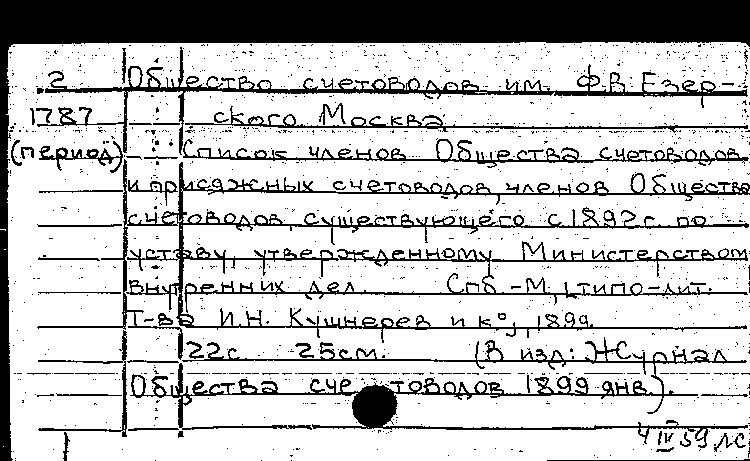 2 Общество счетоводов им. Ф.В. Езер-
1787 ского Москва.
(период) Список членов Общества счетоводов
и присяжных счетоводов, членов Общества
счетоводов, существующего с 1892 г. по
уставу, утвержденному Министерством
внутренних дел. Спб.-М., типо-лит.
Т-ва И.Н. Кушнерев и К°, 1899.
22с. 25см. (В изд: Журнал
Общества счетоводов 1899 янв.).
4 IV 59 лс